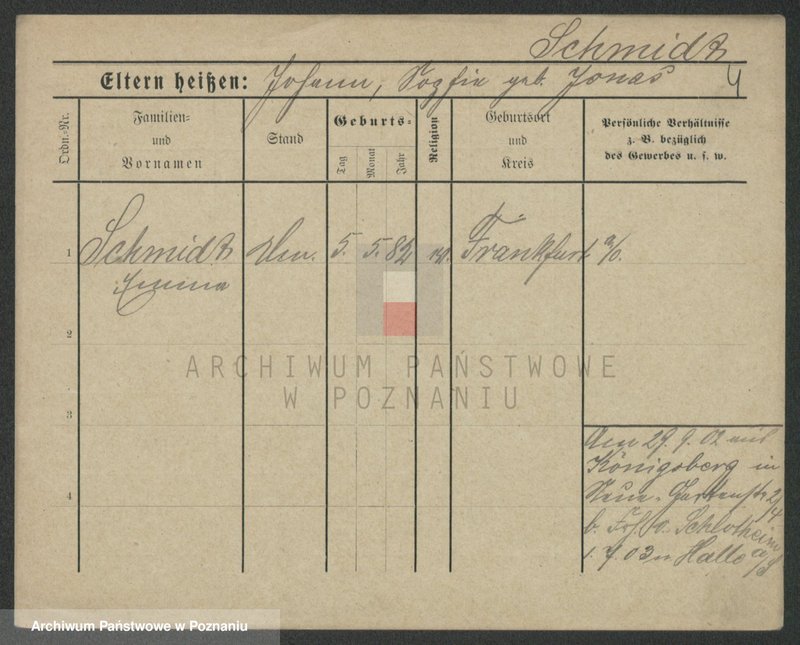 Schmidt
Eltern heißen: Johann, Sozfia geb. Jonas
4
Ordn.-Nr.
Familien-
und
Vornamen
Stand
Geburts-
Tag
Monat
Jahr
Religion
Geburtsort
und
Kreis
Persönliche Verhältnisse
z. B. bezüglich
des Gewerbes u. s. w.
1
Schmidt
5. 5. 82
Frankfurt a/O.
Emma
2
ARCHIWUM PAŃSTWOWE
W POZNANIU
3
29. 9. 02
Königsberg in
Neue-Gartenstr 2/4
b. v. Schlotheim
1. 7. 03 n Halle a/S
4
Archiwum Państwowe w Poznaniu